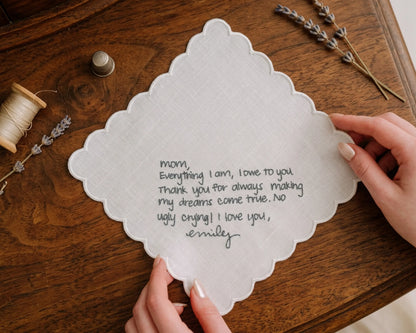 mom,
Everything I am, I owe to you
Thank you for always making
my dreams come true. No
ugly crying! I love you,
emily